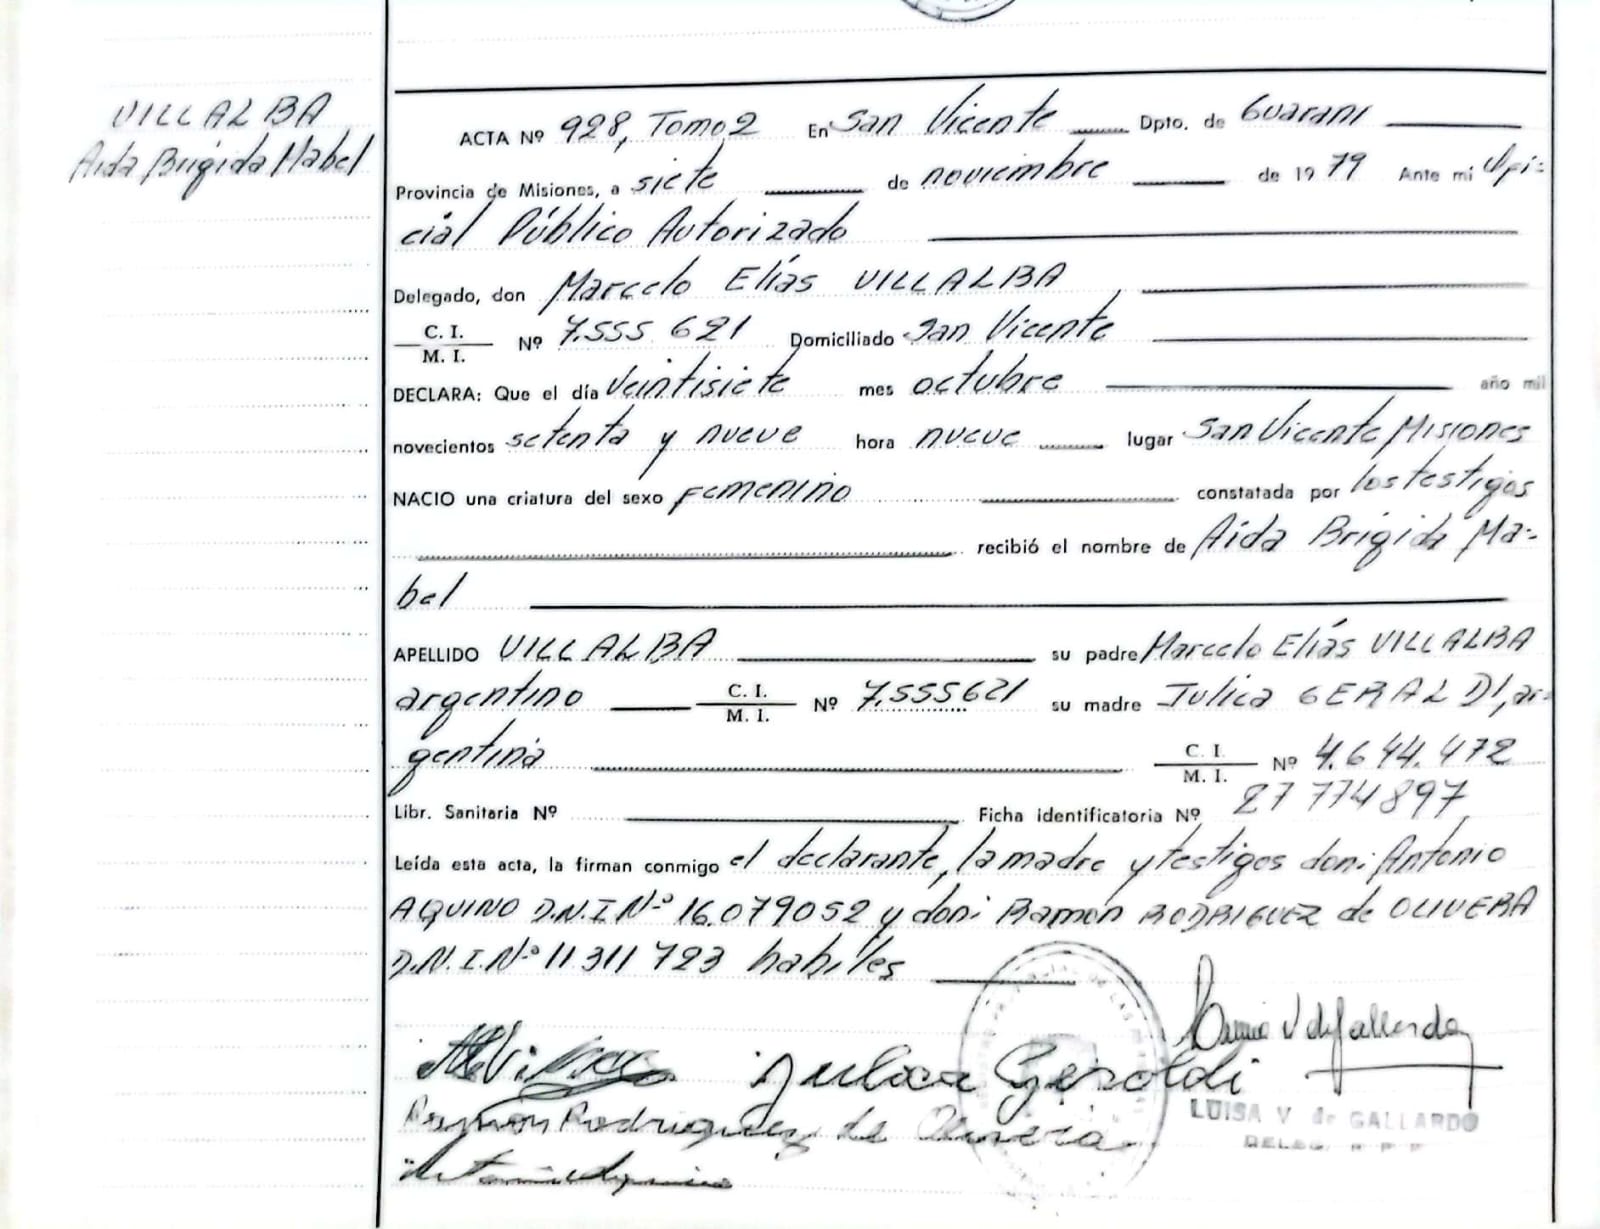 VILLALBA
Aida Brígida Mabel
ACTA Nº 928, Tomo 2 En San Vicente Dpto. de Guaraní
Provincia de Misiones, a siete de noviembre de 1979 Ante mi Ofi-
cial Público Autorizado
Delegado, don Marcelo Elías VILLALBA
C. I.
M. I. Nº 7.555 621 Domiciliado San Vicente
DECLARA: Que el día Veintisiete mes octubre año mil
novecientos setenta y nueve hora nueve lugar San Vicente Misiones
NACIO una criatura del sexo Femenino constatada por los testigos
recibió el nombre de Aida Brigida Ma-
bel
APELLIDO VILLALBA su padre Marcelo Elías VILLALBA
argentino C. I.
M. I. Nº 7.555621 su madre Julica GERALDI, ar-
gentina C. I.
M. I. Nº 4.644.472
Libr. Sanitaria Nº Ficha identificatoria Nº 27 774 897
Leída esta acta, la firman conmigo el declarante, la madre y testigos don: Antonio
AQUINO D.N.I Nº 16.079052 y don: Ramón RODRIGUEZ de OLIVERA
D.N.I.Nº 11 311 723 habiles
Julica Geraldi
Ramon Rodriguez de Olivera
LUISA V de GALLARDO